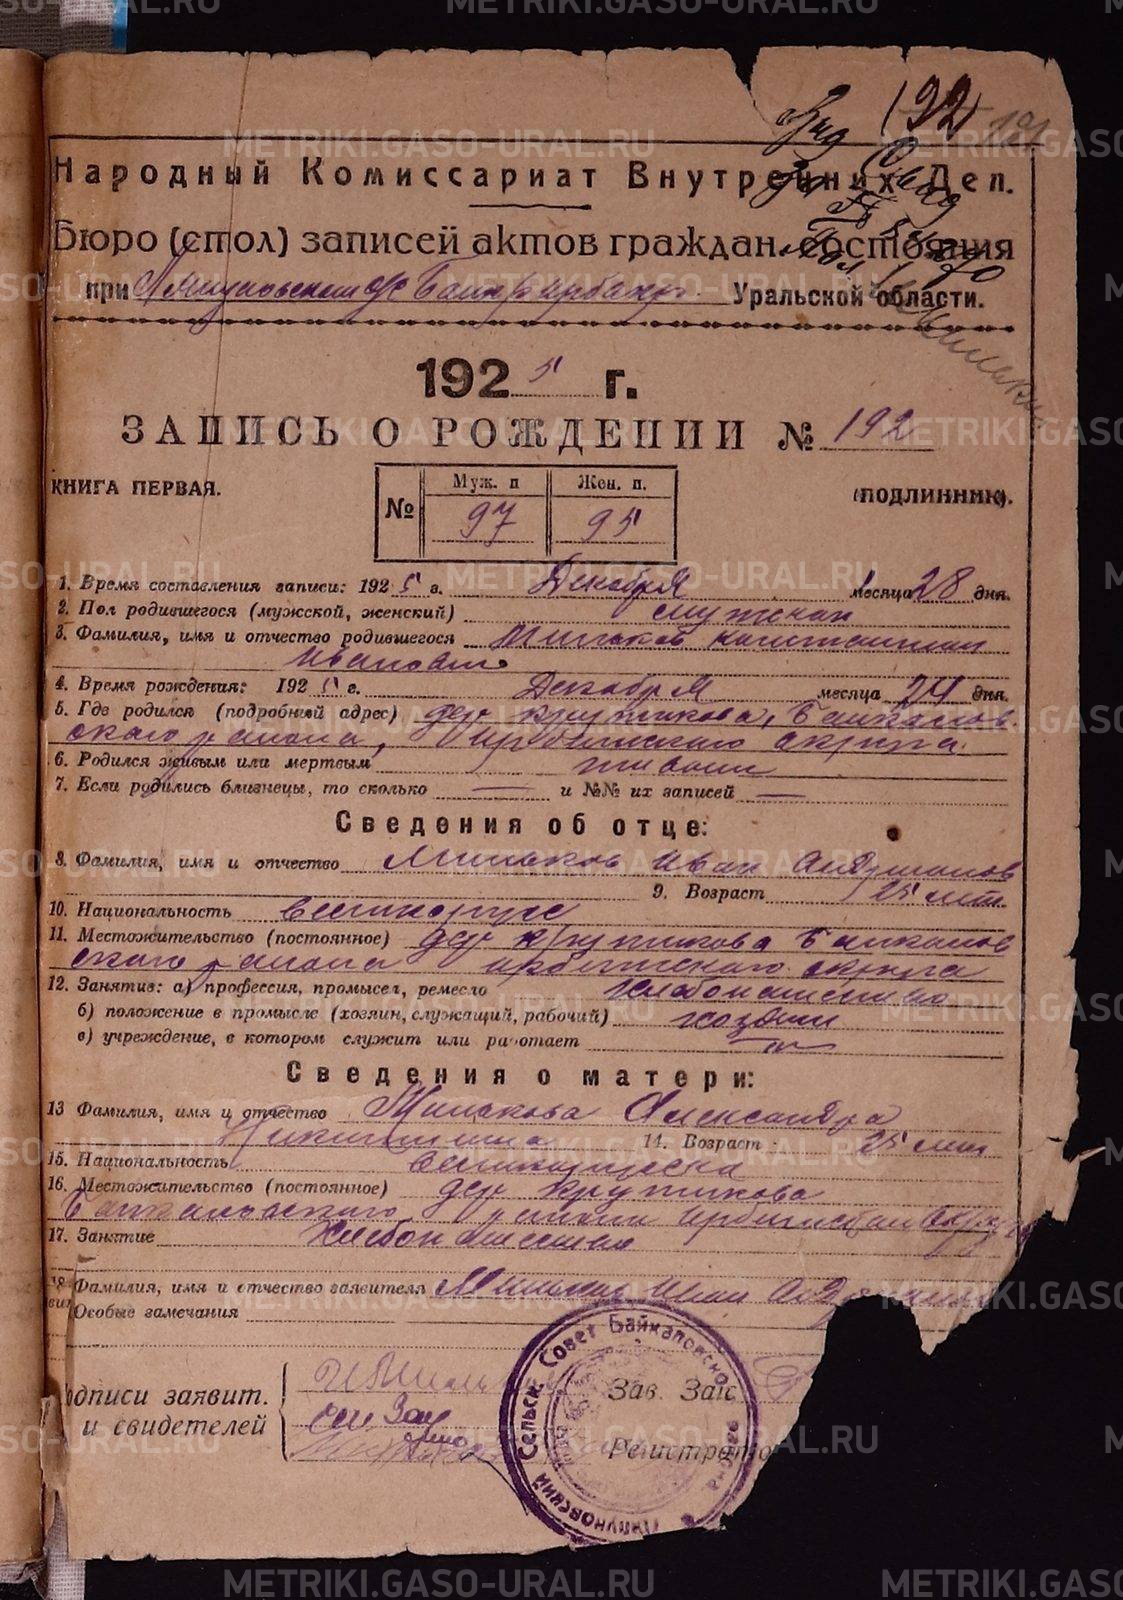 192
Народный Комиссариат Внутренних Дел.
Бюро (стол) записей актов граждан. состояния
при Уральской области.
1925 г.
ЗАПИСЬ О РОЖДЕНИИ № 192
КНИГА ПЕРВАЯ. (ПОДЛИННИК).
№ Муж. п Жен. п.
97 95
1. Время составления записи: 1925 г. Декабря месяца 28 дня.
2. Пол родившегося (мужской, женский) мужской
3. Фамилия, имя и отчество родившегося Мильков Капитолин
Иванович
4. Время рождения: 1925 г. Декабря месяца 24 дня.
5. Где родился (подробный адрес) дер Крутикова, Байкалов
ского района, Ирбитского округа
6. Родился живым или мертвым живым
7. Если родились близнецы, то сколько — и №№ их записей —
Сведения об отце:
8. Фамилия, имя и отчество Мильков Иван
9. Возраст 25 лет
10. Национальность великорус
11. Местожительство (постоянное) дер Крутикова Байкалов
ского района Ирбитского округа
12. Занятие: а) профессия, промысел, ремесло хлебопашество
б) положение в промысле (хозяин, служащий, рабочий) хозяин
в) учреждение, в котором служит или работает
Сведения о матери:
13 Фамилия, имя и отчество Милькова Александра
Никитишна 14. Возраст 25 лет
15. Национальность великорусска
16. Местожительство (постоянное) дер Крутикова
Байкаловского района Ирбитского округа
17. Занятие Хлебопашество
18 Фамилия, имя и отчество заявителя Мильков Иван
Особые замечания
Подписи заявит.
и свидетелей
Зав. Загс
Регистратор
Сельск. Совет Байкаловского
METRIKI.GASO-URAL.RU